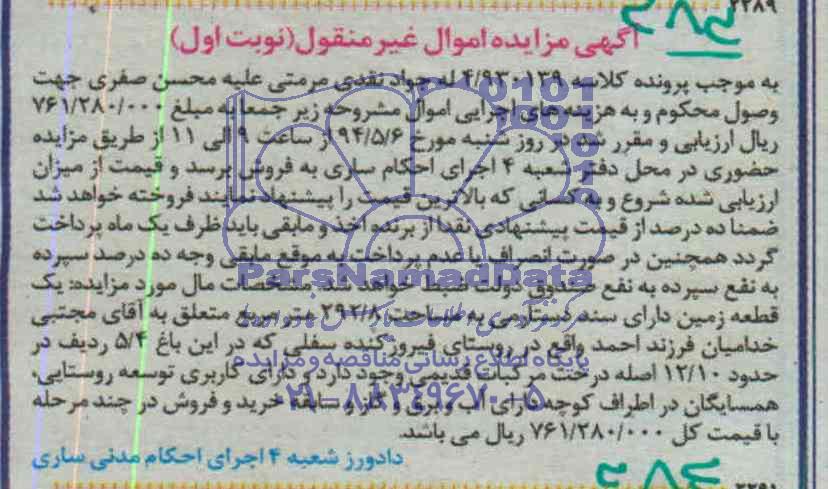 ۲۲۸۹
آگهی مزایده اموال غیر منقول(نوبت اول)
به موجب پرونده کلاسه ۴/۹۳۰۱۳۹ له جواد نقدی مرمتی علیه محسن صفری جهت
وصول محکوم و به هزینه های اجرایی اموال مشروحه زیر جمعا به مبلغ ۷۶۱/۲۸۰/۰۰۰
ریال ارزیابی و مقرر شد در روز شنبه مورخ ۹۴/۵/۶ از ساعت ۹ الی ۱۱ از طریق مزایده
حضوری در محل دفتر شعبه ۴ اجرای احکام ساری به فروش برسد و قیمت از میزان
ارزیابی شده شروع و به کسانی که بالاترین قیمت را پیشنهاد نمایند فروخته خواهد شد
ضمنا ده درصد از قیمت پیشنهادی نقدا از برنده اخذ و مابقی باید ظرف یک ماه پرداخت
گردد همچنین در صورت انصراف یا عدم پرداخت به موقع مابقی وجه ده درصد سپرده
به نفع سپرده به نفع صندوق دولت ضبط خواهد شد. مشخصات مال مورد مزایده: یک
قطعه زمین دارای سند دستارمی به مساحت ۲۹۲/۸ متر مربع متعلق به آقای مجتبی
خدامیان فرزند احمد واقع در روستای فیروزکنده سفلی که در این باغ ۵/۴ ردیف در
حدود ۱۲/۱۰ اصله درخت مرکبات قدیمی وجود دارد و دارای کاربری توسعه روستایی،
همسایگان در اطراف کوچه دارای آب و برق و گاز و سابقه خرید و فروش در چند مرحله
با قیمت کل ۷۶۱/۲۸۰/۰۰۰ ریال می باشد.
دادورز شعبه ۴ اجرای احکام مدنی ساری
ParsNamadData
پایگاه اطلاع رسانی مناقصه و مزایده
۰۲۱-۸۸۳۴۹۶۷۰-۵